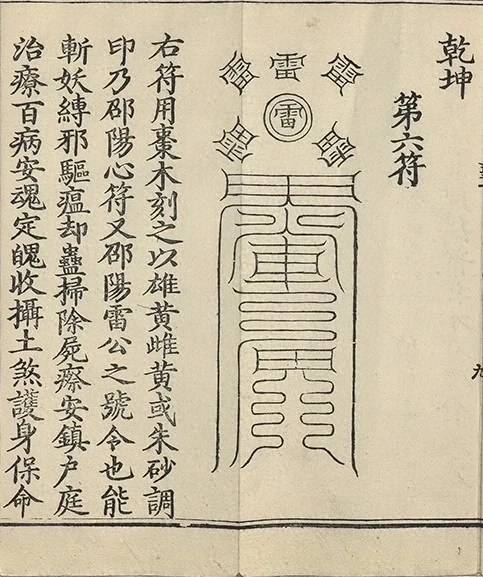 乾坤
第六符
雷
雷
雷
雷
雷
雷
右符用棗木刻之以雄黃雌黃或朱砂調
印乃邵陽心符又邵陽雷公之號令也能
斬妖縛邪驅瘟却蠱掃除屍瘵安鎮户庭
治療百病安魂定魄收攝土煞護身保命